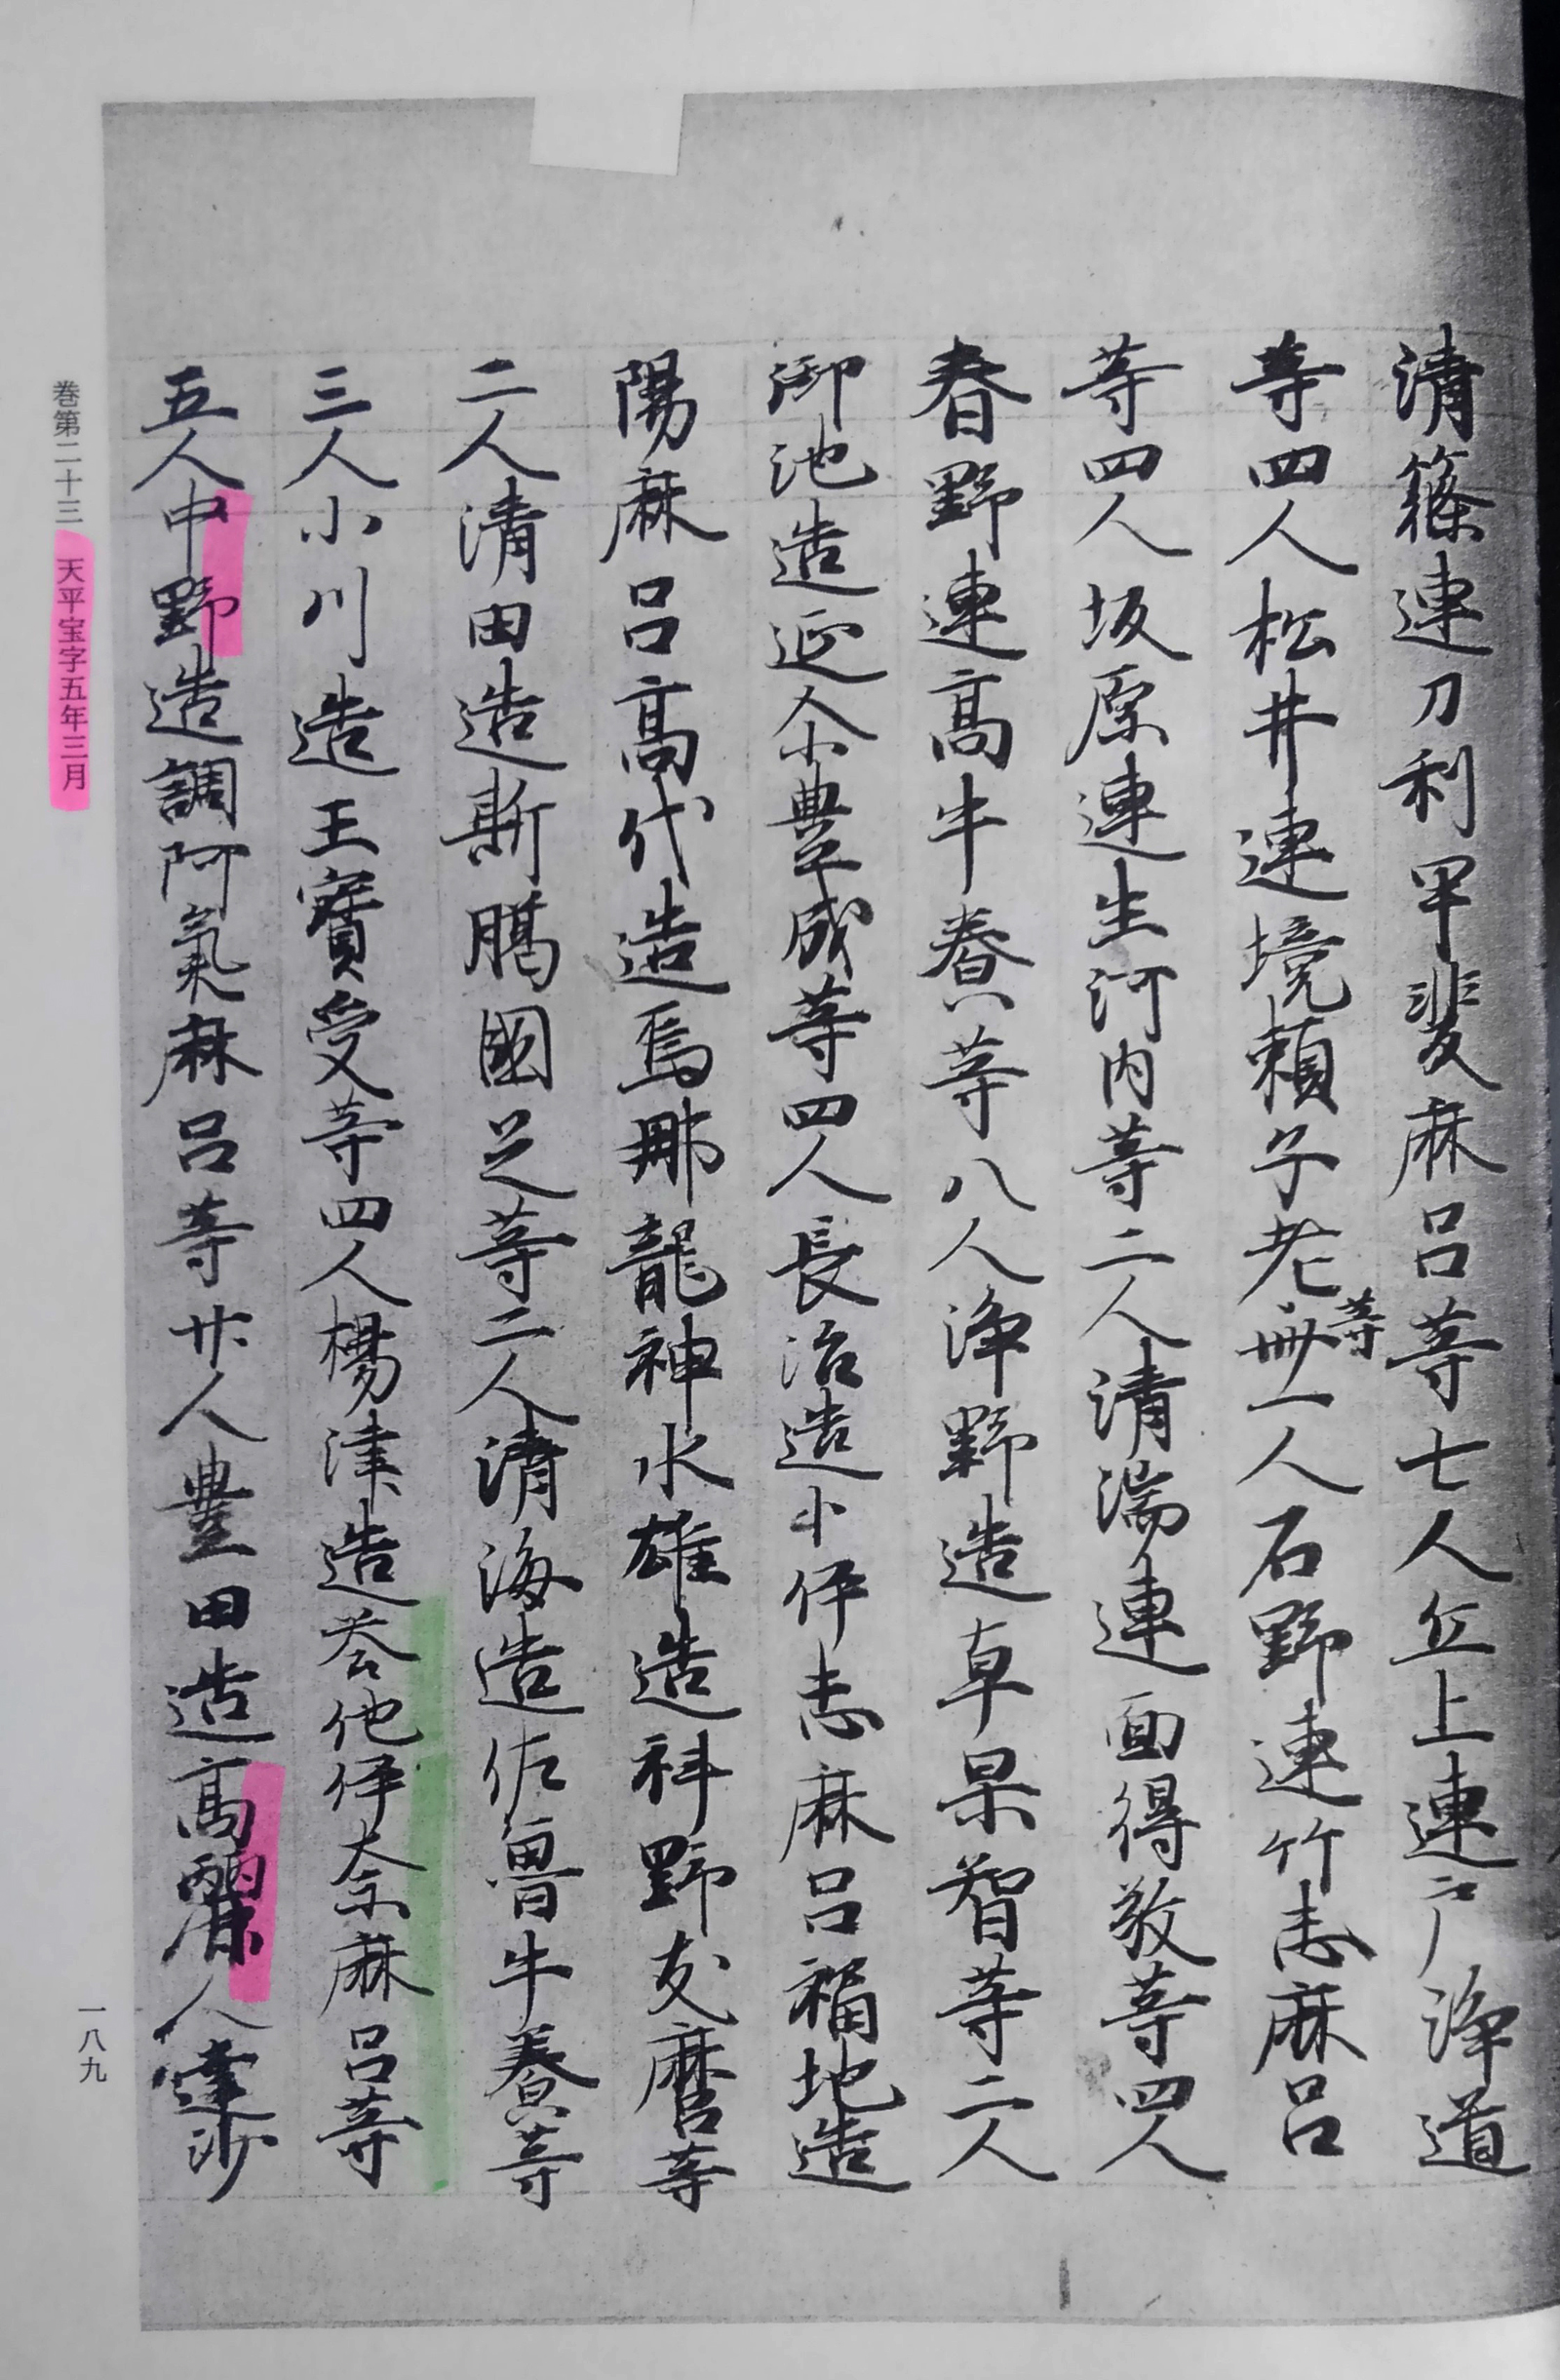 清篠連刀利甲斐麻呂等七人丘上連戶浄道
等四人松井連境頼子老等卌一人石野連竹志麻呂
等四人坂原連生河内等二人清湍連面得敬等四人
春野連高牛養等八人浄野造卓杲智等二人
御池造延尒豊成等四人長沼造小伊志麻呂福地造
陽麻呂高代造烏那龍神水雄造科野友麿等
二人清田造斯﨟國足等二人清海造佐魯牛養等
三人小川造王寶受等四人楊津造荅他伊奈麻呂等
五人中野造調阿氣麻呂等廿人豊田造高麗人達沙
巻第二十三 天平宝字五年三月
一八九